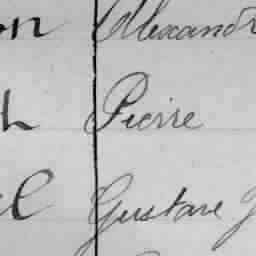 on Alexand
h Pierre
el Gustave J